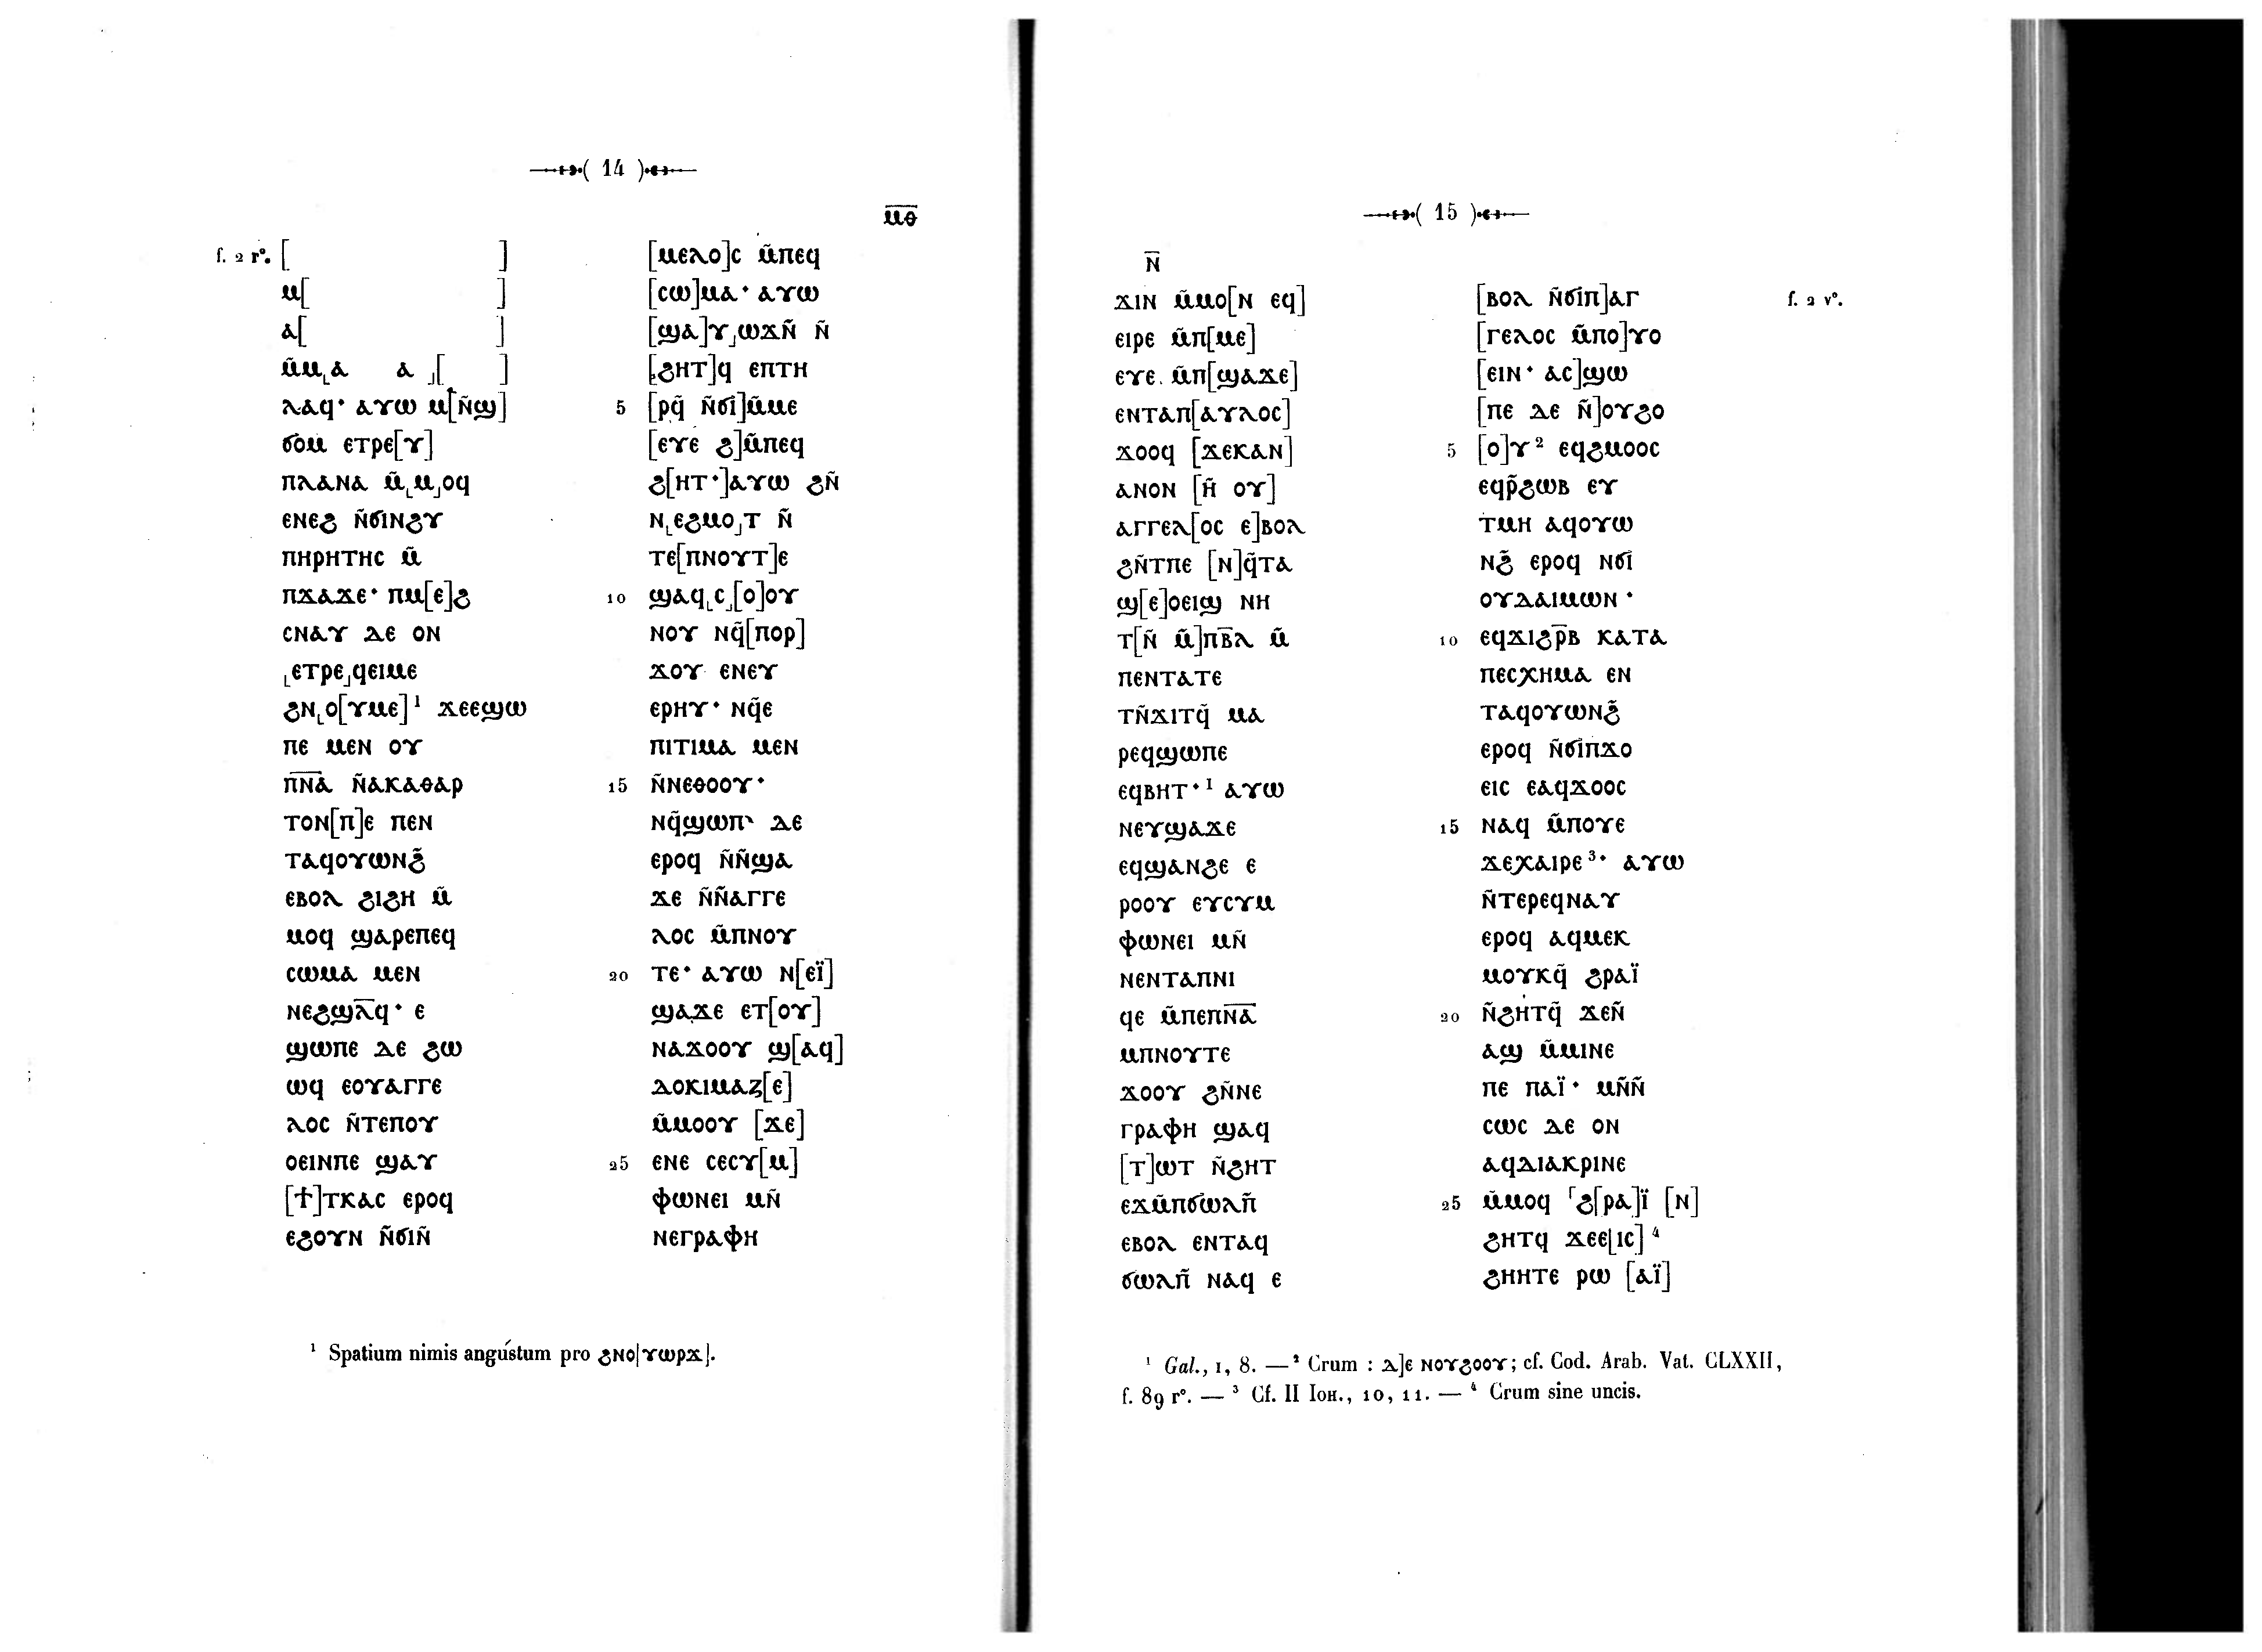 ( 14 )
ⲙ̅ⲑ̅
f. 2 rº. [ ]
ⲙ[ ]
ⲁ[ ]
ⲙ̃ⲙ⌞ⲁ ⲁ ⌟[ ]
ⲗⲁϥ· ⲁⲩⲱ ⲙ[ⲛ̃ϣ]
ϭⲟⲙ ⲉⲧⲣⲉ[ⲩ]
ⲡⲗⲁⲛⲁ ⲙ̃⌞ⲙ⌟ⲟϥ
ⲉⲛⲉϩ ⲛ̃ϭⲓⲛϩⲩ
ⲡⲏⲣⲏⲧⲏⲥ ⲙ̃
ⲡϫⲁϫⲉ· ⲡⲙ[ⲉ]ϩ
ⲥⲛⲁⲩ ⲇⲉ ⲟⲛ
⌞ⲉⲧⲣⲉ⌟ϥⲉⲓⲙⲉ
ϩⲛ⌞ⲟ[ⲩⲙⲉ]¹ ϫⲉⲉϣⲱ
ⲡⲉ ⲙⲉⲛ ⲟⲩ
ⲡ̅ⲛ̅ⲁ̅ ⲛ̃ⲁⲕⲁⲑⲁⲣ
ⲧⲟⲛ[ⲡ]ⲉ ⲡⲉⲛ
ⲧⲁϥⲟⲩⲱⲛϩ̃
ⲉⲃⲟⲗ ϩⲓϩⲏ ⲙ̃
ⲙⲟϥ ϣⲁⲣⲉⲡⲉϥ
ⲥⲱⲙⲁ ⲙⲉⲛ
ⲛⲉϩϣⲗ̅ϥ· ⲉ
ϣⲱⲡⲉ ⲇⲉ ϩⲱ
ⲱϥ ⲉⲟⲩⲁⲅⲅⲉ
ⲗⲟⲥ ⲛ̃ⲧⲉⲡⲟⲩ
ⲟⲉⲓⲛⲡⲉ ϣⲁⲩ
[ϯ]ⲧⲕⲁⲥ ⲉⲣⲟϥ
ⲉϩⲟⲩⲛ ⲛ̃ϭⲓⲛ̃
[ⲙⲉⲗⲟ]ⲥ ⲙ̃ⲡⲉϥ
[ⲥⲱ]ⲙⲁ· ⲁⲩⲱ
[ϣⲁ]ⲩ⌟ⲱϫⲛ̃ ⲛ̃
[ϩⲏⲧ]ϥ ⲉⲡⲧⲏ
5 [ⲣϥ̃ ⲛ̃ϭⲓ]ⲙ̃ⲙⲉ
[ⲉⲩⲉ ϩ]ⲙ̃ⲡⲉϥ
ϩ[ⲏⲧ·]ⲁⲩⲱ ϩⲛ̃
ⲛ⌞ⲉϩⲙⲟ⌟ⲧ ⲛ̃
ⲧⲉ[ⲡⲛⲟⲩⲧ]ⲉ
10 ϣⲁϥ⌞ⲥ⌟[ⲟ]ⲟⲩ
ⲛⲟⲩ ⲛϥ̃[ⲡⲟⲣ]
ϫⲟⲩ ⲉⲛⲉⲩ
ⲉⲣⲏⲩ· ⲛϥ̃ⲉ
ⲡⲓⲧⲓⲙⲁ ⲙⲉⲛ
15 ⲛ̃ⲛⲉⲑⲟⲟⲩ·
ⲛϥ̃ϣⲱⲡ‵ ⲇⲉ
ⲉⲣⲟϥ ⲛ̃ⲛ̃ϣⲁ
ϫⲉ ⲛ̃ⲛ̃ⲁⲅⲅⲉ
ⲗⲟⲥ ⲙ̃ⲡⲛⲟⲩ
20 ⲧⲉ· ⲁⲩⲱ ⲛ[ⲉⲓ̈]
ϣⲁϫⲉ ⲉⲧ[ⲟⲩ]
ⲛⲁϫⲟⲟⲩ ϣ[ⲁϥ]
ⲇⲟⲕⲓⲙⲁⲍ[ⲉ]
ⲙ̃ⲙⲟⲟⲩ [ϫⲉ]
25 ⲉⲛⲉ ⲥⲉⲥⲩ[ⲙ]
ⲫⲱⲛⲉⲓ ⲙⲛ̃
ⲛⲉⲅⲣⲁⲫⲏ
¹ Spatium nimis angustum pro ϩⲛⲟ[ⲩⲱⲣϫ].
( 15 )
ⲛ̅
ϫⲓⲛ ⲙ̃ⲙⲟ[ⲛ ⲉϥ]
ⲉⲓⲣⲉ ⲙ̃ⲡ[ⲙⲉ]
ⲉⲩⲉ ⲙ̃ⲡ[ϣⲁϫⲉ]
ⲉⲛⲧⲁⲡ[ⲁⲩⲗⲟⲥ]
ϫⲟⲟϥ [ϫⲉⲕⲁⲛ]
ⲁⲛⲟⲛ [ⲏ̃ ⲟⲩ]
ⲁⲅⲅⲉⲗ[ⲟⲥ ⲉ]ⲃⲟⲗ
ϩⲛ̃ⲧⲡⲉ [ⲛ]ϥ̃ⲧⲁ
ϣ[ⲉ]ⲟⲉⲓϣ ⲛⲏ
ⲧ[ⲛ̃ ⲙ̃]ⲡⲃ̅ⲗ ⲙ̃
ⲡⲉⲛⲧⲁⲧⲉ
ⲧⲛ̃ϫⲓⲧϥ̃ ⲙⲁ
ⲣⲉϥϣⲱⲡⲉ
ⲉϥⲃⲏⲧ·¹ ⲁⲩⲱ
ⲛⲉⲩϣⲁϫⲉ
ⲉϥϣⲁⲛϩⲉ ⲉ
ⲣⲟⲟⲩ ⲉⲩⲥⲩⲙ
ⲫⲱⲛⲉⲓ ⲙⲛ̃
ⲛⲉⲛⲧⲁⲡⲛⲓ
ϥⲉ ⲙ̃ⲡⲉⲡⲛ̅ⲁ̅
ⲙⲡⲛⲟⲩⲧⲉ
ϫⲟⲟⲩ ϩⲛ̃ⲛⲉ
ⲅⲣⲁⲫⲏ ϣⲁϥ
[ⲧ]ⲱⲧ ⲛ̃ϩⲏⲧ
ⲉϫⲙ̃ⲡϭⲱⲗⲡ̃
ⲉⲃⲟⲗ ⲉⲛⲧⲁϥ
ϭⲱⲗⲡ̃ ⲛⲁϥ ⲉ
[ⲃⲟⲗ ⲛ̃ϭⲓⲡ]ⲁⲅ f. 2 vº.
[ⲅⲉⲗⲟⲥ ⲙ̃ⲡⲟ]ⲩⲟ
[ⲉⲓⲛ· ⲁⲥ]ϣⲱ
[ⲡⲉ ⲇⲉ ⲛ̃]ⲟⲩϩⲟ
5 [ⲟ]ⲩ² ⲉϥϩⲙⲟⲟⲥ
ⲉϥⲣ̃ϩⲱⲃ ⲉⲩ
ⲧⲙⲏ ⲁϥⲟⲩⲱ
ⲛϩ̃ ⲉⲣⲟϥ ⲛϭⲓ
ⲟⲩⲇⲁⲓⲙⲱⲛ·
10 ⲉϥϫⲓϩⲣ̅ⲃ ⲕⲁⲧⲁ
ⲡⲉⲥⲭⲏⲙⲁ ⲉⲛ
ⲧⲁϥⲟⲩⲱⲛϩ̃
ⲉⲣⲟϥ ⲛ̃ϭⲓⲡϫⲟ
ⲉⲓⲥ ⲉⲁϥϫⲟⲟⲥ
15 ⲛⲁϥ ⲙ̃ⲡⲟⲩⲉ
ϫⲉⲭⲁⲓⲣⲉ³· ⲁⲩⲱ
ⲛ̃ⲧⲉⲣⲉϥⲛⲁⲩ
ⲉⲣⲟϥ ⲁϥⲙⲉⲕ
ⲙⲟⲩⲕϥ̃ ϩⲣⲁⲓ̈
20 ⲛ̃ϩⲏⲧϥ̃ ϫⲉⲛ̃
ⲁϣ ⲙ̃ⲙⲓⲛⲉ
ⲡⲉ ⲡⲁⲓ̈· ⲙⲛ̃ⲛ̃
ⲥⲱⲥ ⲇⲉ ⲟⲛ
ⲁϥⲇⲓⲁⲕⲣⲓⲛⲉ
25 ⲙ̃ⲙⲟϥ ⌜ϩ[ⲣⲁ]ⲓ̈ [ⲛ]
ϩⲏⲧϥ ϫⲉⲉ[ⲓⲥ]⁴
ϩⲏⲏⲧⲉ ⲣⲱ [ⲁⲓ̈]
¹ Gal., 1, 8. — ² Crum : ⲇ]ⲉ ⲛⲟⲩϩⲟⲟⲩ; cf. Cod. Arab. Vat. CLXXII,
f. 89 rº. — ³ Cf. II Ioн., 10, 11. — ⁴ Crum sine uncis.